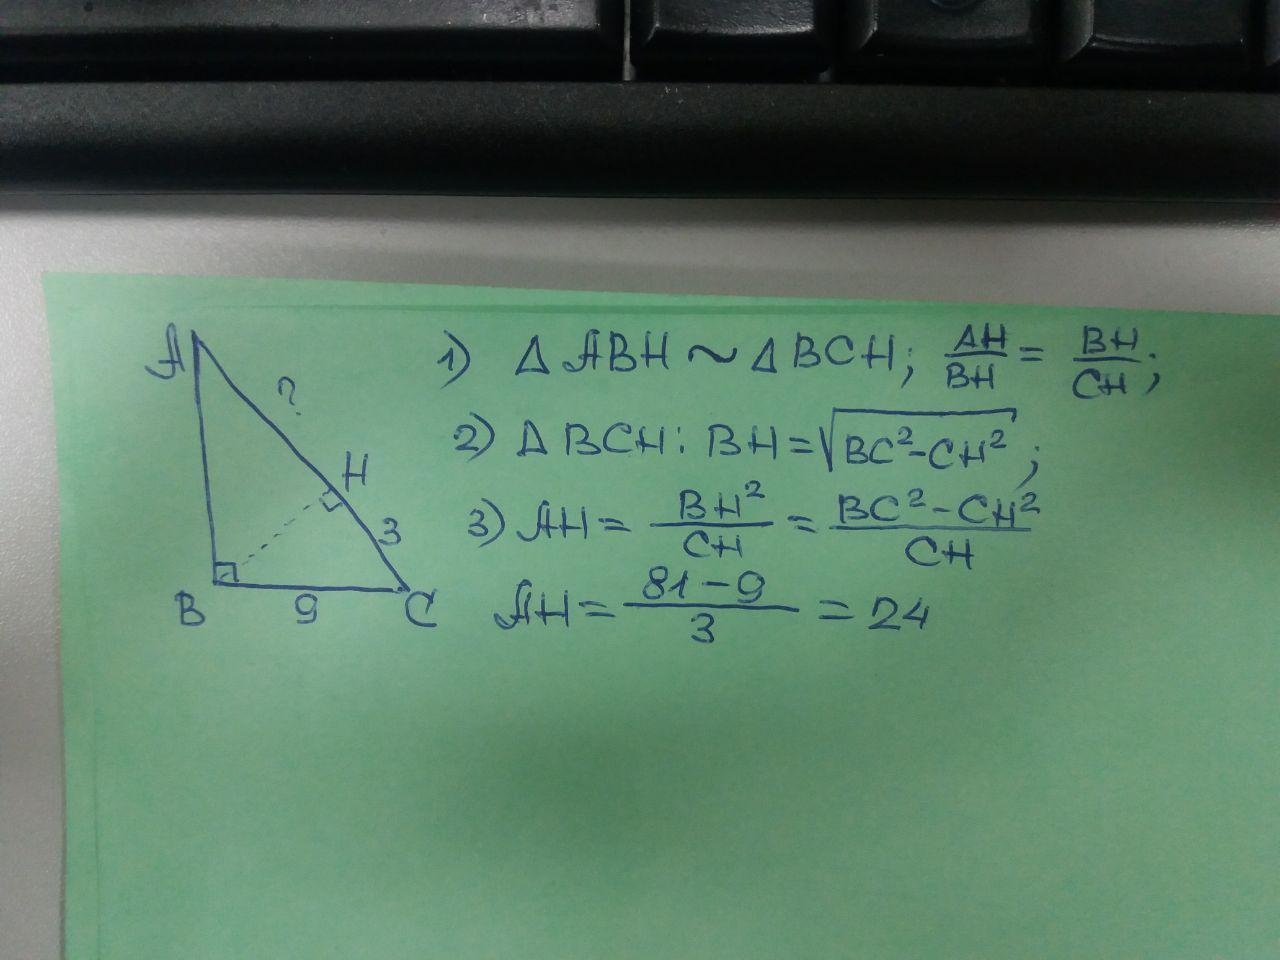 A
?
H
3
B
9
C
1) Δ ABH ~ Δ BCH; AH/BH = BH/CH;
2) Δ BCH: BH = √(BC²-CH²);
3) AH = BH²/CH = BC²-CH²/CH
AH = 81-9/3 = 24